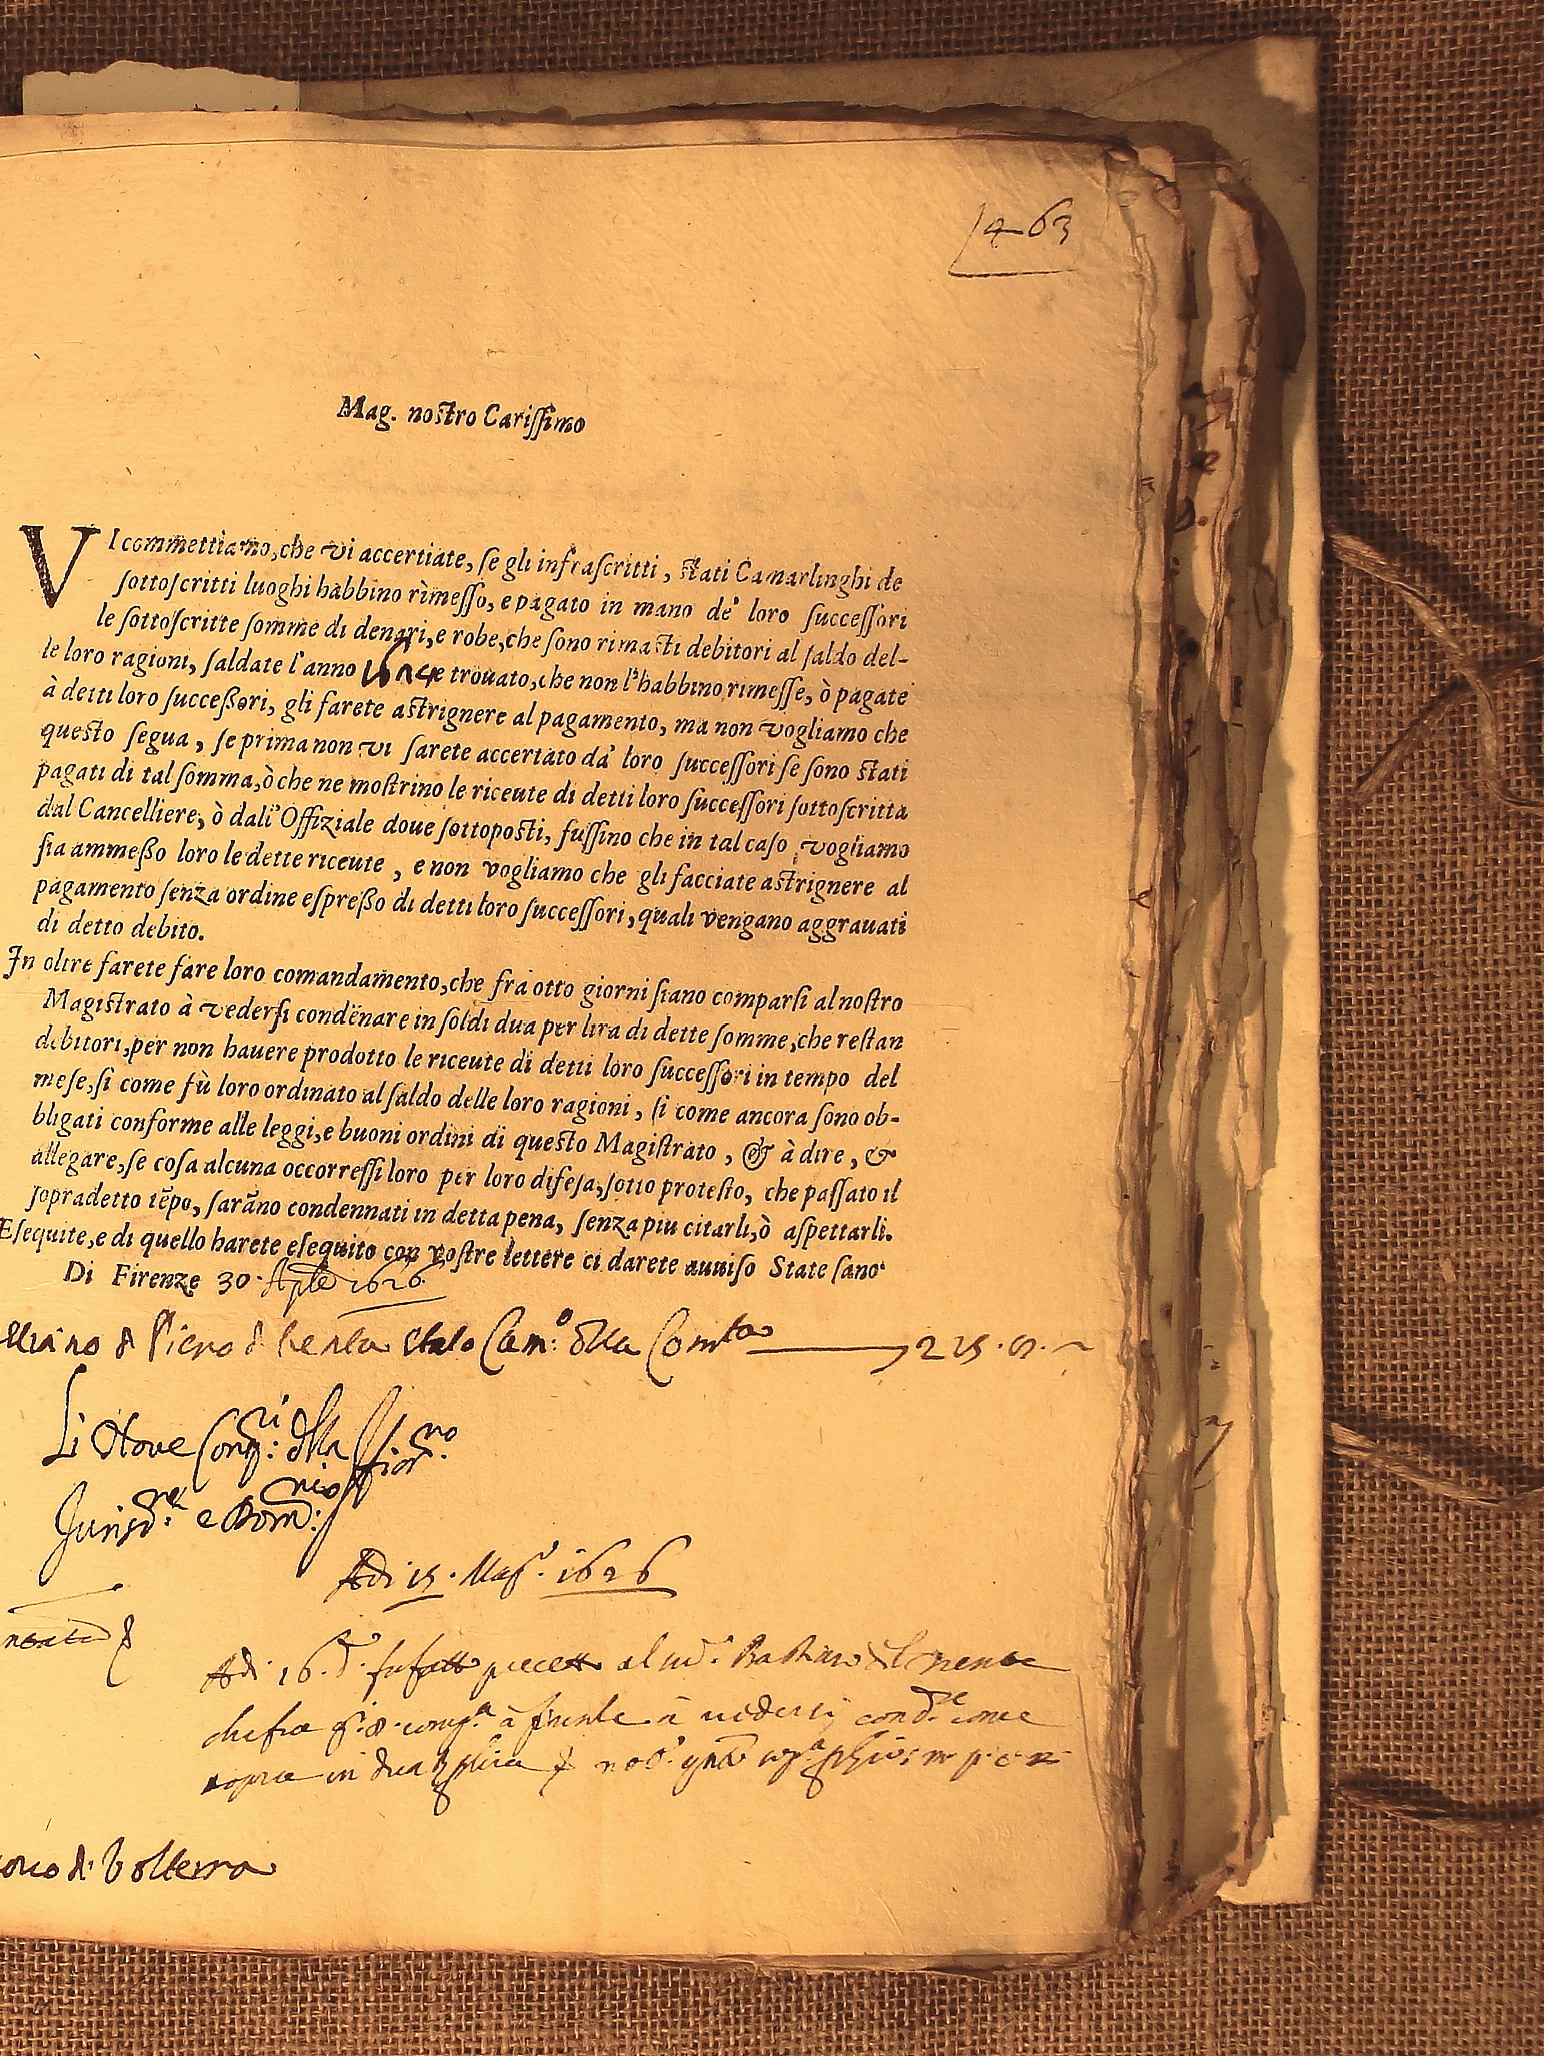 463
Mag. nostro Carissimo
VI commettiamo, che vi accertiate, se gli infrascritti, stati Camarlinghi de
sottoscritti luoghi habbino rimesso, e pagato in mano de' loro successori
le sottoscritte somme di denari, e robe, che sono rimasti debitori al saldo del-
le loro ragioni, saldate l'anno e trouato, che non l'habbino rimesse, ò pagate
à detti loro successori, gli farete astrignere al pagamento, ma non vogliamo che
questo segua, se prima non vi sarete accertato da' loro successori se sono stati
pagati di tal somma, ò che ne mostrino le riceute di detti loro successori sottoscritta
dal Cancelliere, ò dall'Offiziale doue sottoposti, fussino che in tal caso vogliamo
sia ammesso loro le dette riceute, e non vogliamo che gli facciate astrignere al
pagamento senza ordine espresso di detti loro successori, quali vengano aggrauati
di detto debito.
In oltre farete fare loro comandamento, che frà otto giorni siano comparsi al nostro
Magistrato à vedersi condēnare in soldi dua per lira di dette somme, che restan
debitori, per non hauere prodotto le riceute di detti loro successori in tempo del
mese, si come fù loro ordinato al saldo delle loro ragioni, si come ancora sono ob-
bligati conforme alle leggi, e buoni ordini di questo Magistrato, & à dire, &
allegare, se cosa alcuna occorressi loro per loro difesa, sotto protesto, che passato il
sopradetto tēpo, sarāno condennati in detta pena, senza piu citarli, ò aspettarli.
Esequite, e di quello harete esequito con vostre lettere ci darete auuiso State sano
Di Firenze 30. Aple 1626
di Piero di stato Cam.o della Comta 225
Li Noue Con.ri della
Juris.ne e Dom.nio fior.no
Adi 15. Mag. 1626
Adi 16. d. fu fatto precetto al
che fra à firenze à uedersi cond.re come
sopra in dua p lira
di Volterra